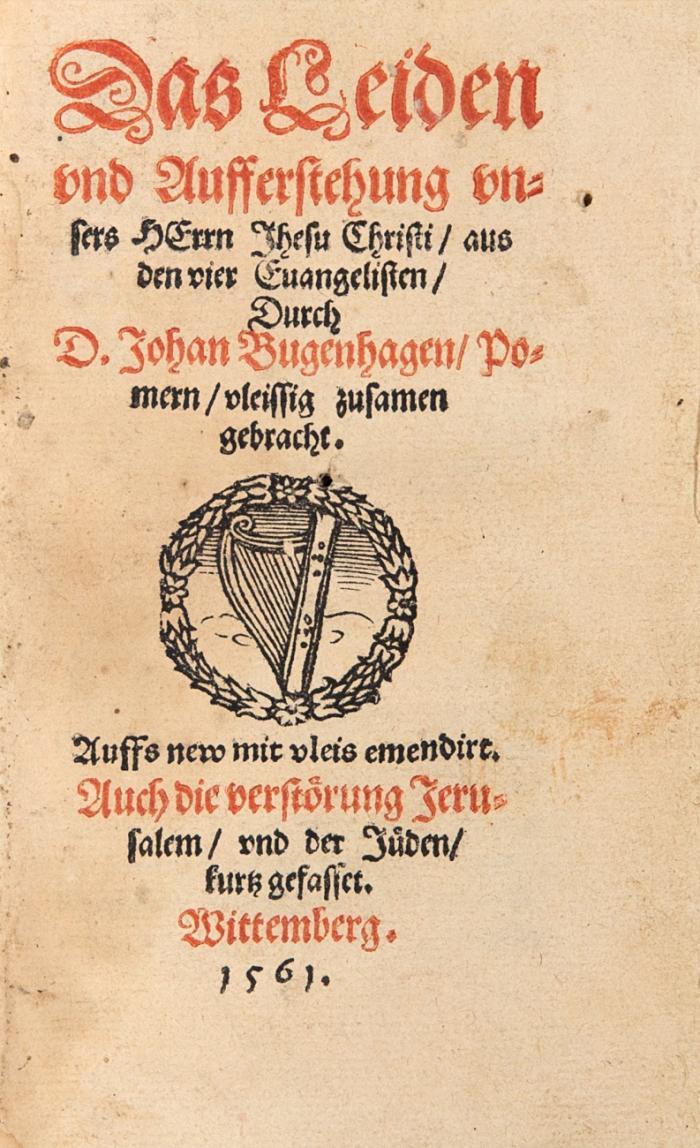 Das Leiden
vnd Aufferstehung vn-
sers HErrn Jhesu Christi / aus
den vier Euangelisten /
Durch
D. Johan Bugenhagen / Po-
mern / vleissig zusamen
gebracht.
Auffs new mit vleis emendirt.
Auch die verstörung Jeru-
salem / vnd der Jüden /
kurtz gefasset.
Wittemberg.
1561.